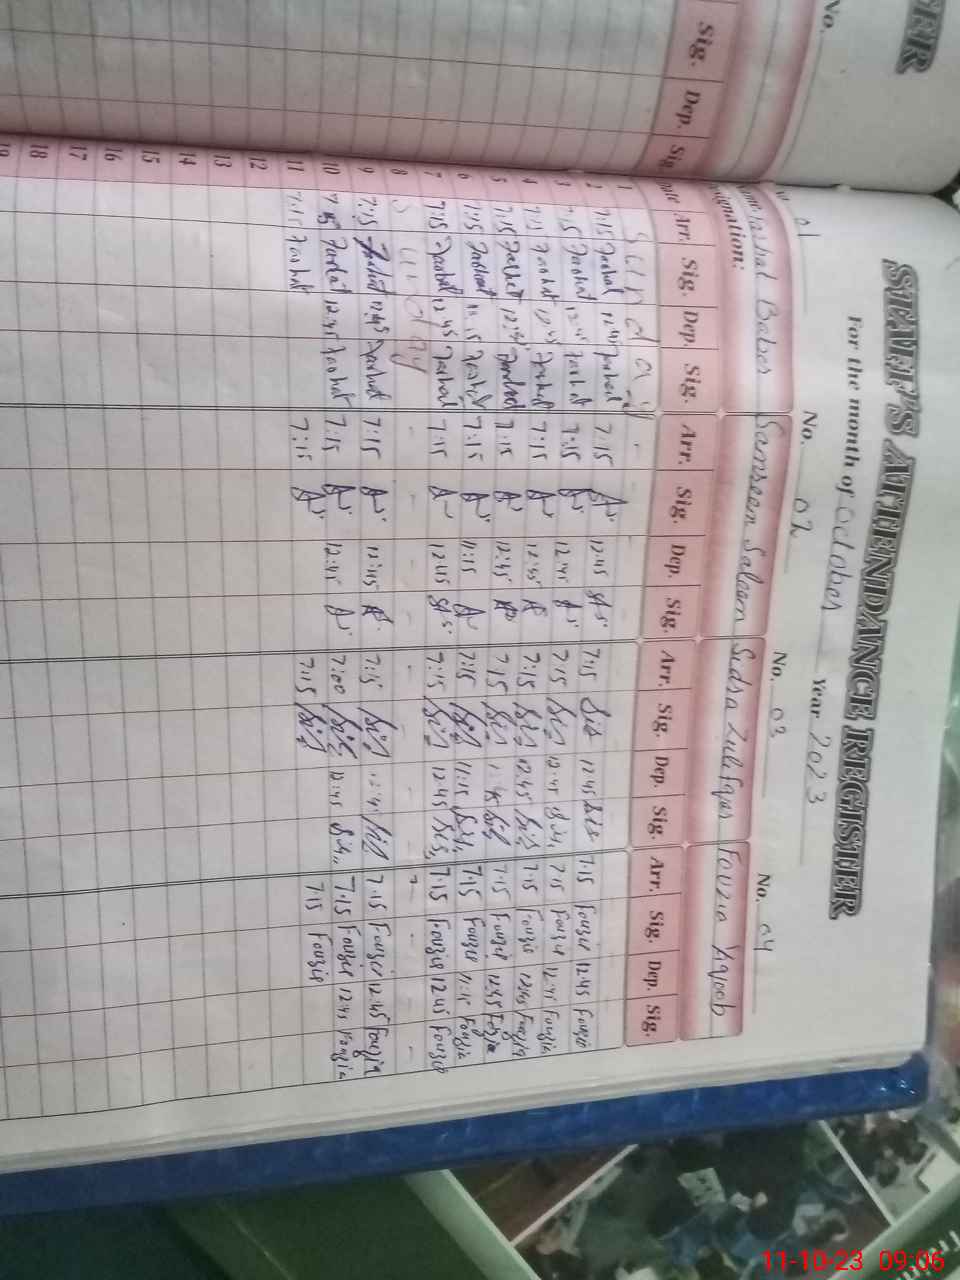 TER
No.
Sig. Dep. Sig.
STAFF'S ATTENDANCE REGISTER
For the month of October Year 2023
No. 01 No. 02 No. 03 No. 04
Name: Farhat Baber Samreen Saleem Sidra Zulifqar Fouzia Yaqoob
Designation:
Date Arr. Sig. Dep. Sig. Arr. Sig. Dep. Sig. Arr. Sig. Dep. Sig. Arr. Sig. Dep. Sig.
1 Sunday
2 7:15 Farhat 12:45 Farhat 7:15 12:45 7:15 12:45 7:15 Fouzia 12:45 Fouzia
3 7:15 Farhat 12:45 Farhat 7:15 12:45 7:15 12:45 7:15 Fouzia 12:45 Fouzia
4 7:15 Farhat 12:45 Farhat 7:15 12:45 7:15 12:45 7:15 Fouzia 12:45 Fouzia
5 7:15 Farhat 12:45 Farhat 7:15 12:45 7:15 12:45 7:15 Fouzia 12:45 Fouzia
6 7:15 Farhat 11:15 Farhat 7:15 11:15 7:15 11:15 7:15 Fouzia 11:15 Fouzia
7 7:15 Farhat 12:45 Farhat 7:15 12:45 7:15 12:45 7:15 Fouzia 12:45 Fouzia
8 Sunday
9 7:15 Farhat 12:45 Farhat 7:15 12:45 7:15 12:45 7:15 Fouzia 12:45 Fouzia
10 7:15 Farhat 12:45 Farhat 7:15 12:45 7:00 12:45 7:15 Fouzia 12:45 Fouzia
11 7:15 Farhat 7:15 7:15 7:15 Fouzia
12
13
14
15
16
17
18
19
11-10-23 09:06